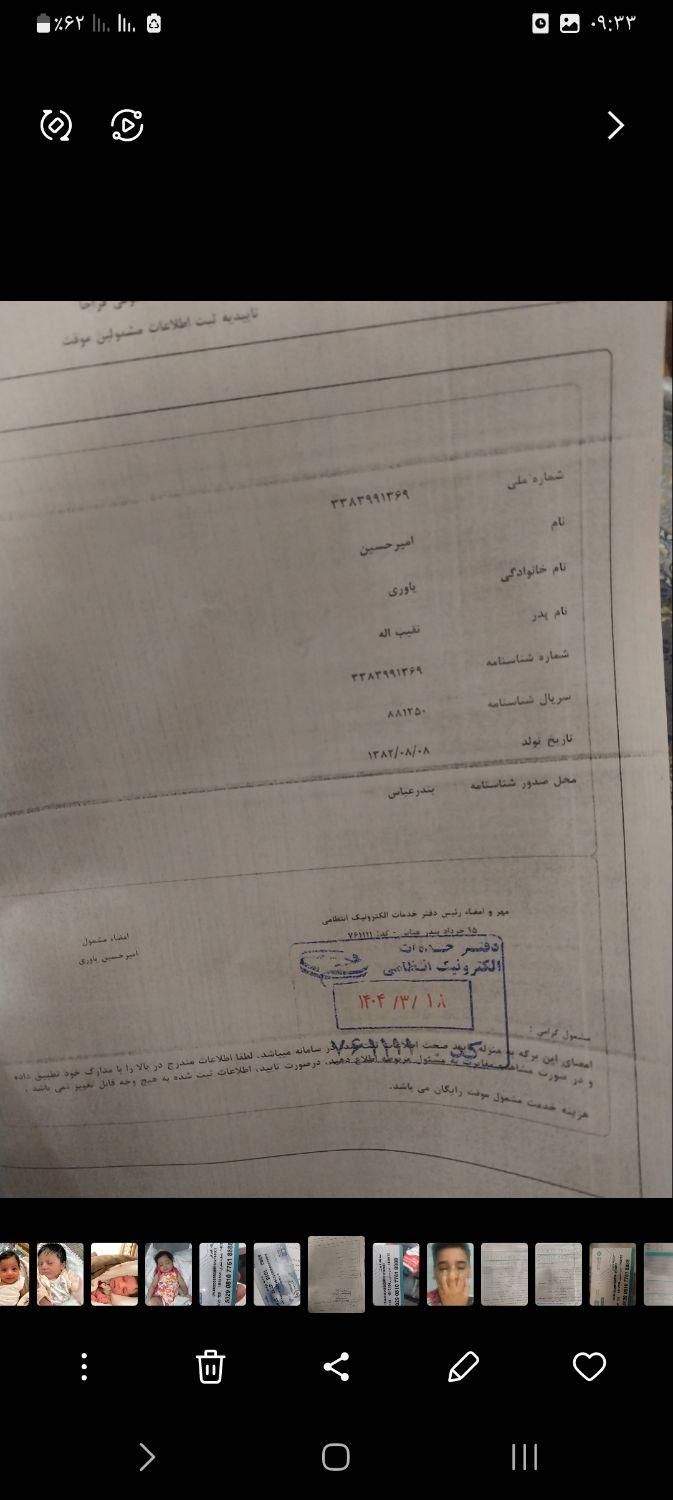 ٪۶۲
۰۹:۳۳
تاییدیه ثبت اطلاعات مشمولین موقت
شماره ملی ۳۳۸۳۹۹۱۳۶۹
نام امیرحسین
نام خانوادگی یاوری
نام پدر نقیب اله
شماره شناسنامه ۳۳۸۳۹۹۱۳۶۹
سریال شناسنامه ۸۸۱۲۵۰
تاریخ تولد ۱۳۸۲/۰۸/۰۸
محل صدور شناسنامه بندرعباس
مهر و امضاء رئیس دفتر خدمات الکترونیک انتظامی
۱۵ خرداد بندر عباس - کد: ۷۶۱۱۱۱
امضاء مشمول
امیرحسین یاوری
دفتر خدمات
الکترونیک انتظامی
۱۴۰۴ /۳/
کد ۷۶۱۱۱۱
مشمول گرامی :
امضای این برگه به منزله تایید صحت اطلاعات ثبت شده در سامانه میباشد. لطفا اطلاعات مندرج در بالا را با مدارک خود تطبیق داده
و در صورت مشاهده مغایرت به مسئول مربوطه اطلاع دهید. درصورت تایید، اطلاعات ثبت شده به هیچ وجه قابل تغییر نمی باشد .
هزینه خدمت مشمول موقت رایگان می باشد.